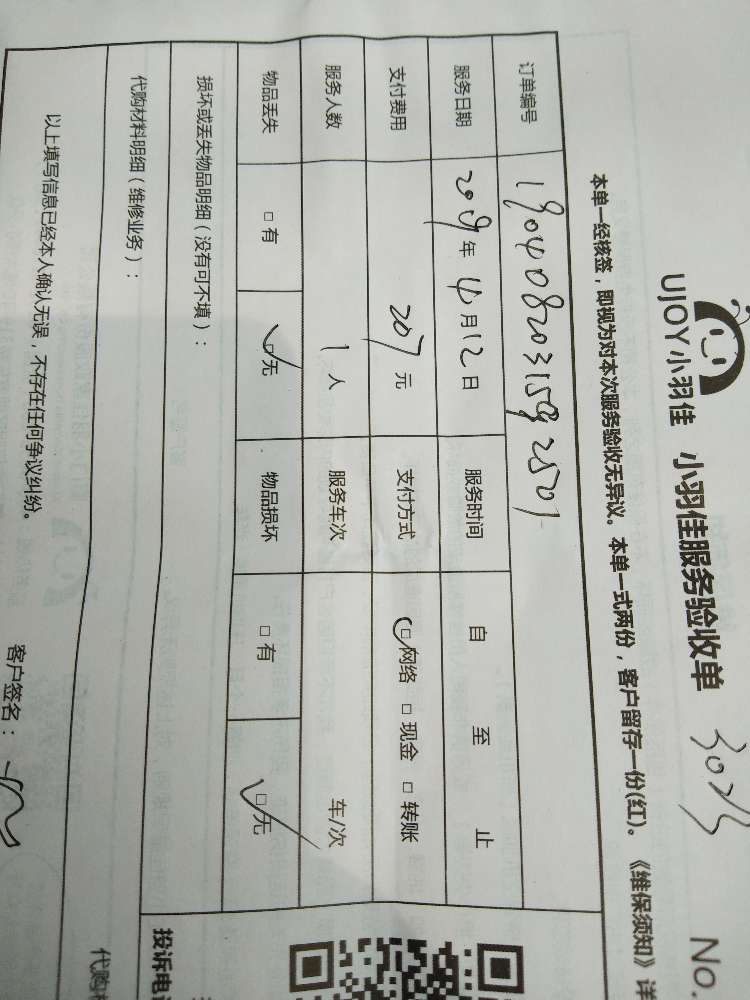 UJOY小羽佳 小羽佳服务验收单 No.
本单一经核签，即视为对本次服务验收无异议。本单一式两份，客户留存一份(红)。《维保须知》详
订单编号
服务日期 2019年4月12日 服务时间 自 至 止
支付费用 207元 支付方式 □网络 □现金 □转账
服务人数 1人 服务车次 车/次
物品丢失 □有 □无 物品损坏 □有 □无
损坏或丢失物品明细（没有可不填）：
代购材料明细（维修业务）：
以上填写信息已经本人确认无误，不存在任何争议纠纷。
客户签名：
投诉电
代购